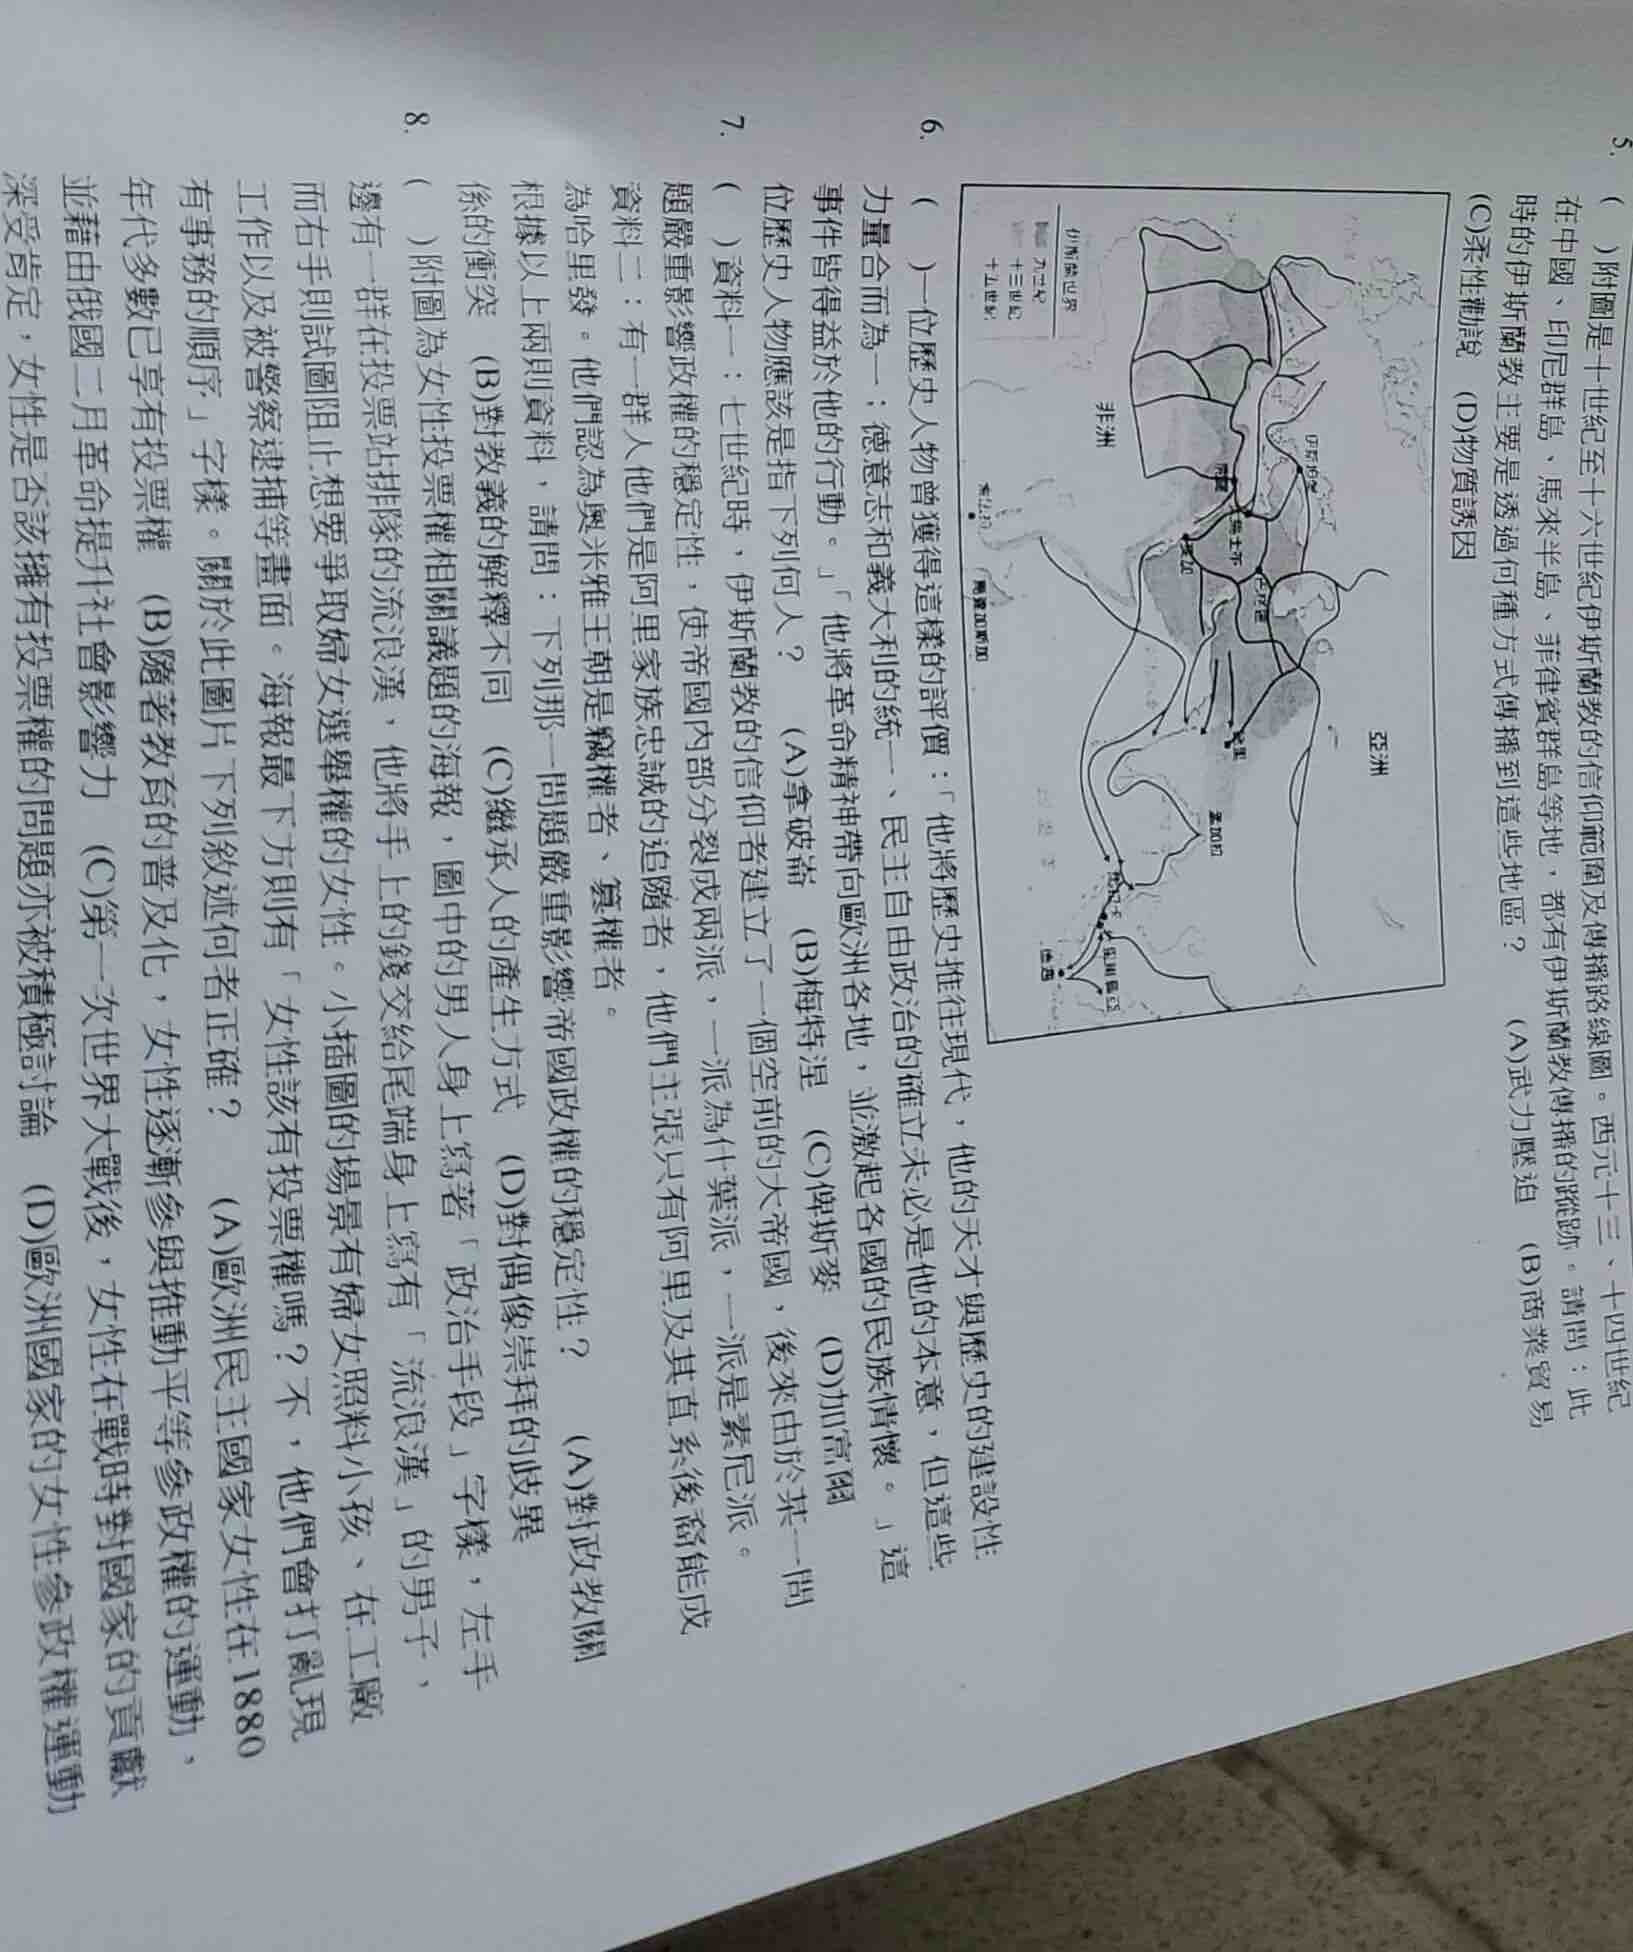 5. (　)附圖是十世紀至十六世紀伊斯蘭教的信仰範圍及傳播路線圖。西元十三、十四世紀
在中國、印尼群島、馬來半島、菲律賓群島等地，都有伊斯蘭教傳播的蹤跡。請問：此
時的伊斯蘭教主要是透過何種方式傳播到這些地區？　(A)武力壓迫　(B)商業貿易
(C)柔性勸說　(D)物質誘因
亞洲
非洲
伊斯蘭世界
九世紀
十三世紀
十五世紀
開羅
麥加
巴格達
德里
孟加拉
馬達加斯加
6. (　)一位歷史人物曾獲得這樣的評價：「他將歷史推往現代，他的天才與歷史的建設性
力量合而為一；德意志和義大利的統一、民主自由政治的確立未必是他的本意，但這些
事件皆得益於他的行動。」「他將革命精神帶向歐洲各地，並激起各國的民族情懷。」這
位歷史人物應該是指下列何人？　(A)拿破崙　(B)梅特涅　(C)俾斯麥　(D)加富爾
7. (　)資料一：七世紀時，伊斯蘭教的信仰者建立了一個空前的大帝國，後來由於某一問
題嚴重影響政權的穩定性，使帝國內部分裂成兩派，一派為什葉派，一派是素尼派。
資料二：有一群人他們是阿里家族忠誠的追隨者，他們主張只有阿里及其直系後裔能成
為哈里發。他們認為奧米雅王朝是竊權者、篡權者。
根據以上兩則資料，請問：下列那一問題嚴重影響帝國政權的穩定性？　(A)對政教關
係的衝突　(B)對教義的解釋不同　(C)繼承人的產生方式　(D)對偶像崇拜的歧異
8. (　)附圖為女性投票權相關議題的海報，圖中的男人身上寫著「政治手段」字樣，左手
邊有一群在投票站排隊的流浪漢，他將手上的錢交給尾端身上寫有「流浪漢」的男子，
而右手則試圖阻止想要爭取婦女選舉權的女性。小插圖的場景有婦女照料小孩、在工廠
工作以及被警察逮捕等畫面。海報最下方則有「女性該有投票權嗎？不，他們會打亂現
有事務的順序」字樣。關於此圖片下列敘述何者正確？　(A)歐洲民主國家女性在1880
年代多數已享有投票權　(B)隨著教育的普及化，女性逐漸參與推動平等參政權的運動，
並藉由俄國二月革命提升社會影響力　(C)第一次世界大戰後，女性在戰時對國家的貢獻
深受肯定，女性是否該擁有投票權的問題亦被積極討論　(D)歐洲國家的女性參政權運動